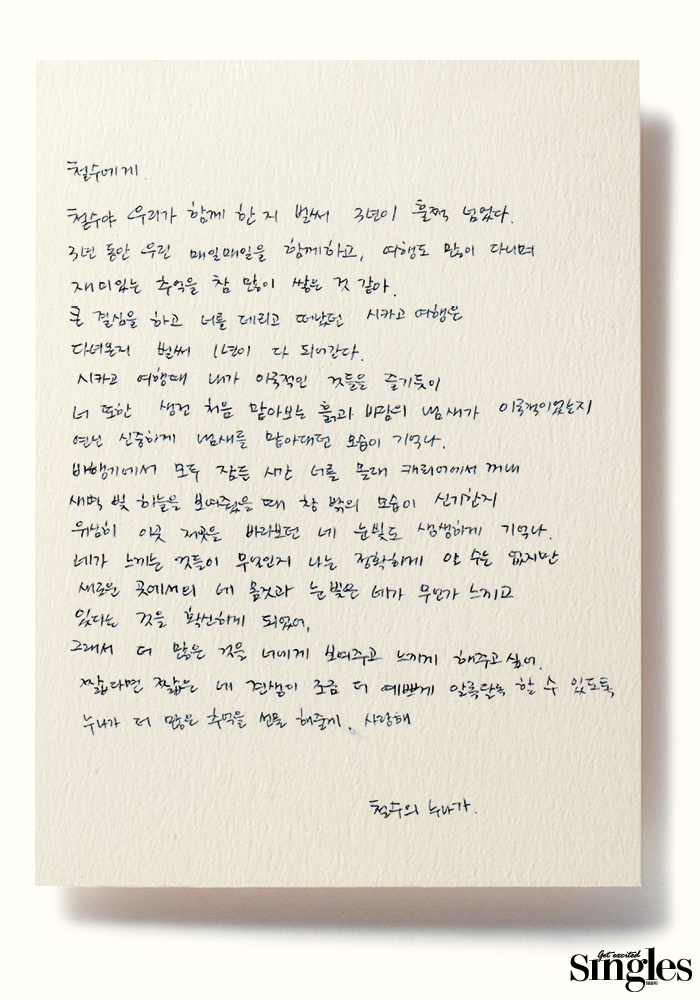 철수에게.
철수야 우리가 함께 한지 벌써 3년이 훌쩍 넘었다.
3년 동안 우린 매일매일을 함께하고, 여행도 많이 다니며
재미있는 추억을 참 많이 쌓은 것 같아.
큰 결심을 하고 너를 데리고 떠났던 시카고 여행은
다녀온지 벌써 1년이 다 되어간다.
시카고 여행때 내가 이국적인 것들을 즐기듯이
너 또한 생전 처음 맡아보는 흙과 바람의 냄새가 이국적이었는지
연신 신중하게 냄새를 맡아대던 모습이 기억나.
비행기에서 모두 잠든 시간 너를 몰래 캐리어에서 꺼내
새벽 빛 하늘을 보여주었을 때 창 밖의 모습이 신기한지
유심히 이곳 저곳을 바라보던 네 눈빛도 생생하게 기억나.
네가 느끼는 것들이 무엇인지 나는 정확하게 알 수는 없지만
새로운 곳에서의 네 몸짓과 눈빛은 네가 무언가 느끼고
있다는 것을 확신하게 되었어.
그래서 더 많은 것을 너에게 보여주고 느끼게 해주고 싶어.
짧다면 짧은 네 견생이 조금 더 예쁘게 알록달록 할 수 있도록
누나가 더 많은 추억을 선물 해줄게. 사랑해
철수의 누나가.
Get excited
Singles